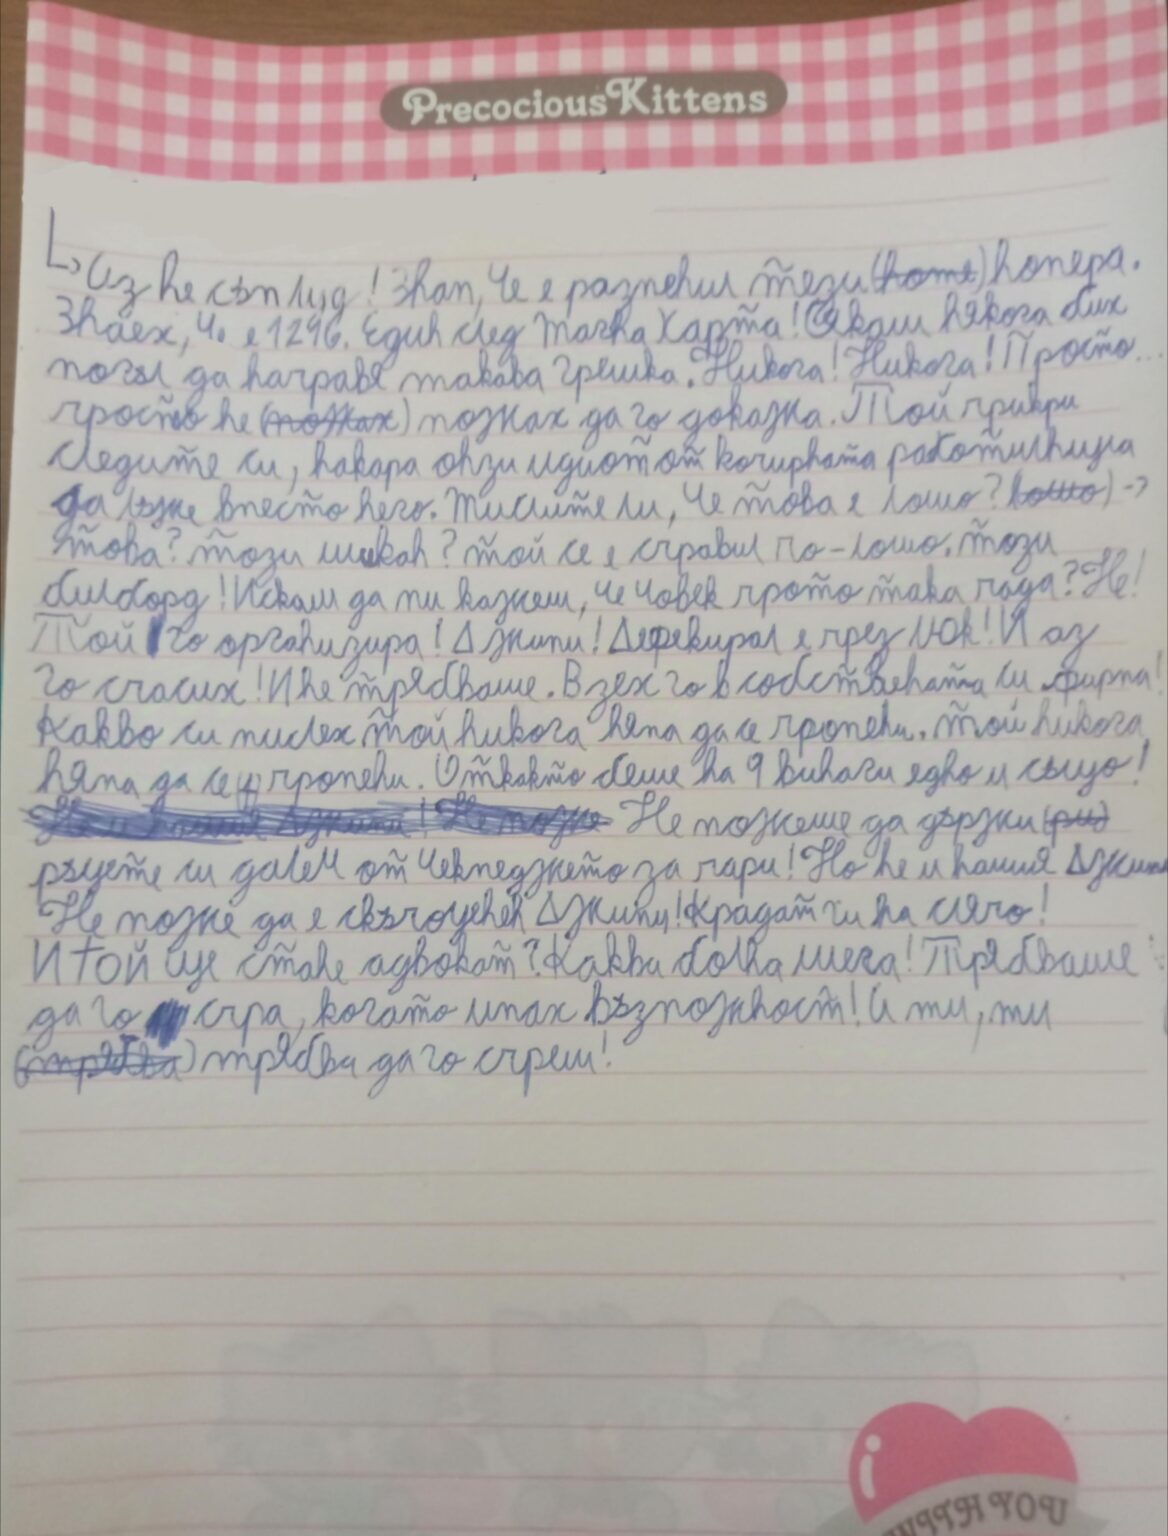 PrecociousKittens
Аз не съм луд! Знам, че е разменил тези (номе) номера.
Знаех, че е 1216. Един след Магна Харта! Сякаш някога бих
могъл да направя такава грешка. Никога! Никога! Просто...
просто не (можах) можах да го докажа. Той прикри
следите си, накара онзи идиот от копирната работилница
да лъже вместо него. Мислите ли, че това е лошо? (лошо) ->
Това? този шикан? той се е справил по-лошо. този
билборд! Искаш да ми кажеш, че човек просто така пада? Не!
Той го организира! Джими! Дефекирал е през люк! И аз
го спасих! И не трябваше. Взех го в собствената си фирма!
Какво си мислех той никога няма да се промени. той никога
няма да се промени. Откакто беше на 9 винаги едно и също!
Не и нашия Джими! Не може Не можеше да държи (ри)
ръцете си далеч от чекмеджето за пари! Но не и нашия Джими
Не може да е скъпоценен Джими! Крадат ги на сляпо!
И той ще стане адвокат? Каква болна шега! Трябваше
да го спра, когато имах възможност! И ти, ти
(трябва) трябва да го спреш!
YOU